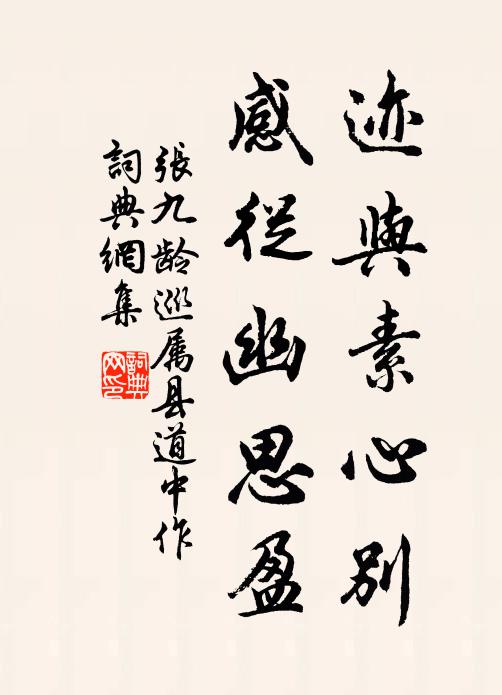 迹與素心別
感從幽思盈
張九龄巡属县道中作
詞典網集
詞典网印